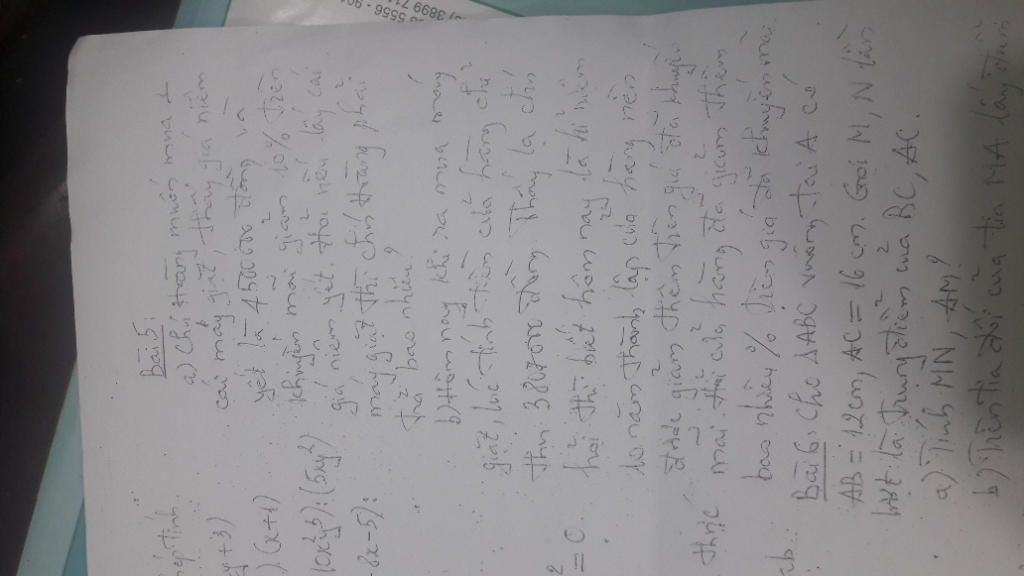 5556 - 90
3699 71
phép tính
y+3)
) (x+1)
10x²y³) : (5xy²)
-8x-5) :
² = 0.
thức
ab.
Bài 5:
a) Chú Hoàng muốn mua 1
cái máy giặt, thấy giá niêm
yết là 4500000 đồng và
khuyến mãi giảm 10% tiền
giá niêm yết. Hỏi nếu lấy cái
máy giặt thì chú Hoàng phải
trả bao nhiêu?
b) Hôm nay khi ra mua máy
giặt, lúc tính tiền cửa hàng chỉ
thu đồng. Thấy lạ chú
hỏi thì biết hôm nay là kỉ niệm
10 năm thành lập cửa hàng nên
được giảm thêm trên giá đã khuyến
mãi. Hỏi cửa hàng đã giảm thêm
bao nhiêu % trên giá đã khuyến mãi.
Bài 6: Cho ΔABC vuông tại A có
AB = 12cm, AC = 16 cm. Gọi M, N lần
lượt là trung điểm của BC, AC.
a) Tính MN, AM?
b) Trên tia đối của tia MA lấy điểm